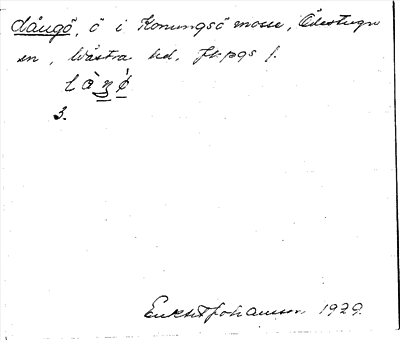 Långö, ö i Konungsö mosse, Ödestugu
sn, Västra hd, Jkpgs l.
3.
Erik H Johansson. 1929.